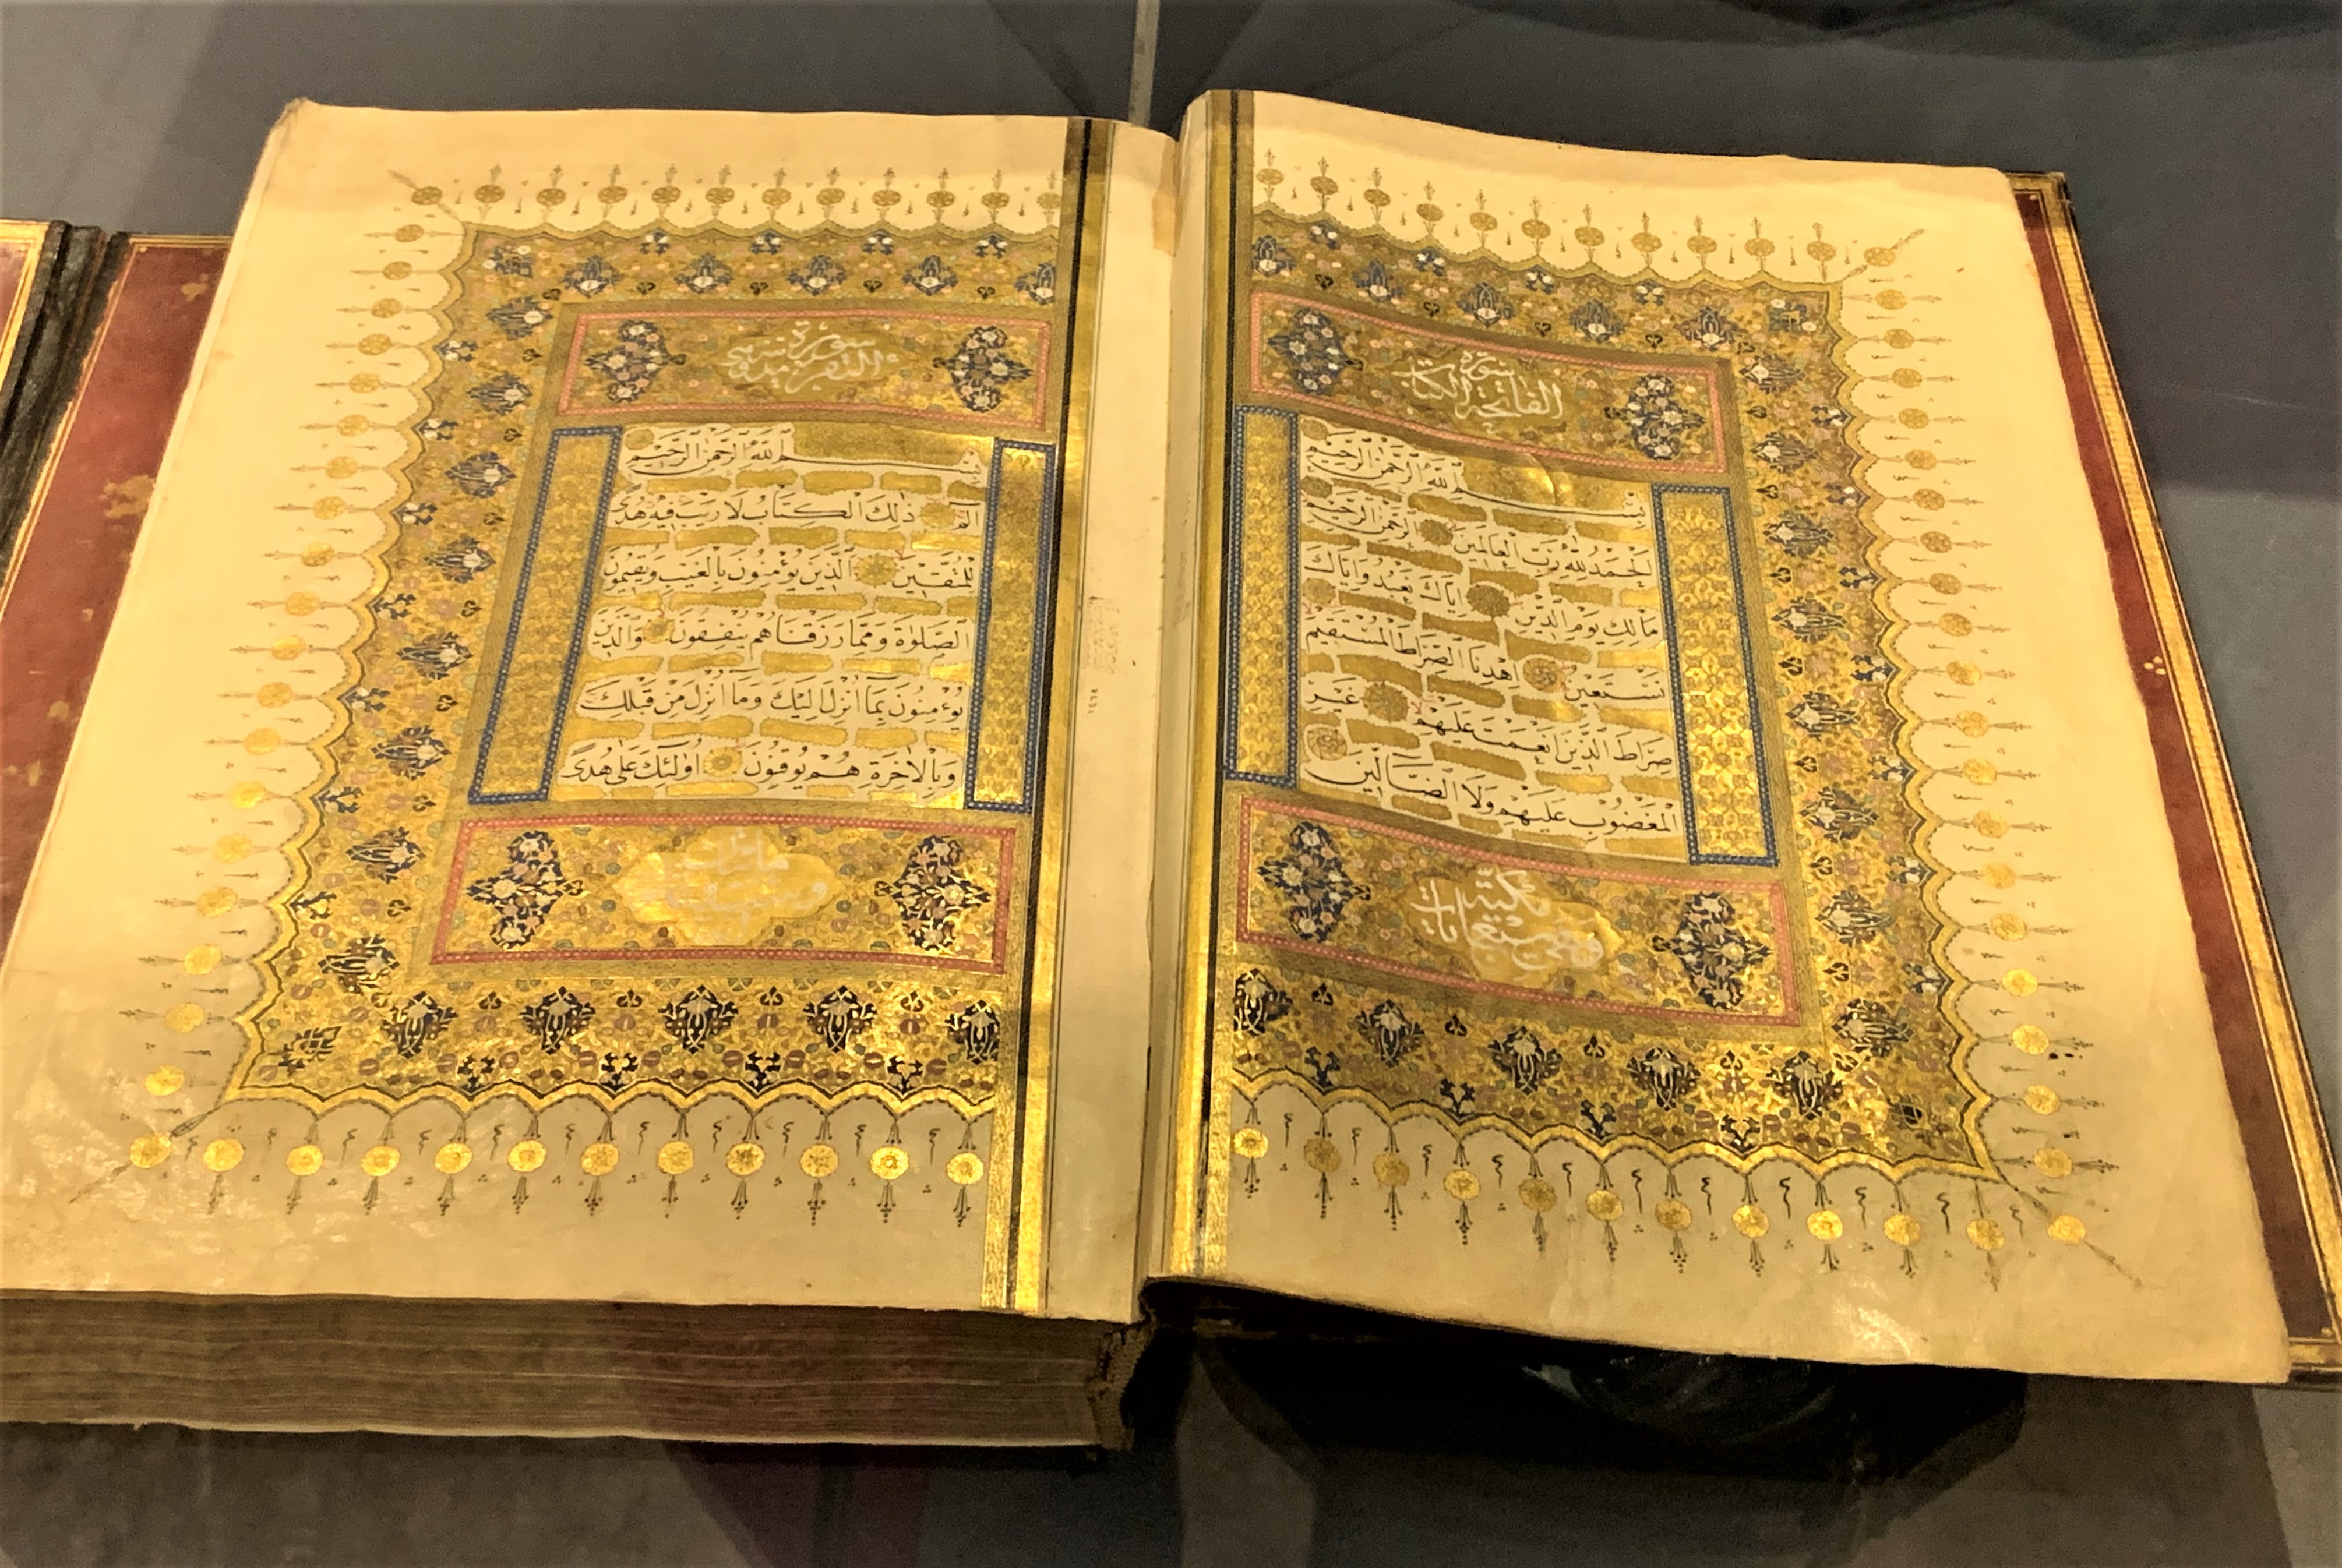 سورة
الفاتحة الكتاب
بِسْمِ اللّٰهِ الرَّحْمٰنِ الرَّحِيمِ
اَلْحَمْدُ لِلّٰهِ رَبِّ الْعَالَمِينَ الرَّحْمٰنِ الرَّحِيمِ
مَالِكِ يَوْمِ الدِّينِ اِيَّاكَ نَعْبُدُ وَاِيَّاكَ
نَسْتَعِينُ اِهْدِنَا الصِّرَاطَ الْمُسْتَقِيمَ
صِرَاطَ الَّذِينَ اَنْعَمْتَ عَلَيْهِمْ غَيْرِ
الْمَغْضُوبِ عَلَيْهِمْ وَلَا الضَّالِّينَ
مكية
وهي سبع ايات
سورة
البقرة مدنية
بِسْمِ اللّٰهِ الرَّحْمٰنِ الرَّحِيمِ
الٓمٓ ذٰلِكَ الْكِتَابُ لَا رَيْبَ فِيهِ هُدًى
لِلْمُتَّقِينَ اَلَّذِينَ يُؤْمِنُونَ بِالْغَيْبِ وَيُقِيمُونَ
الصَّلٰوةَ وَمِمَّا رَزَقْنَاهُمْ يُنْفِقُونَ وَالَّذِينَ
يُؤْمِنُونَ بِمَا اُنْزِلَ اِلَيْكَ وَمَا اُنْزِلَ مِنْ قَبْلِكَ
وَبِالْاٰخِرَةِ هُمْ يُوقِنُونَ اُولٰٓئِكَ عَلٰى هُدًى